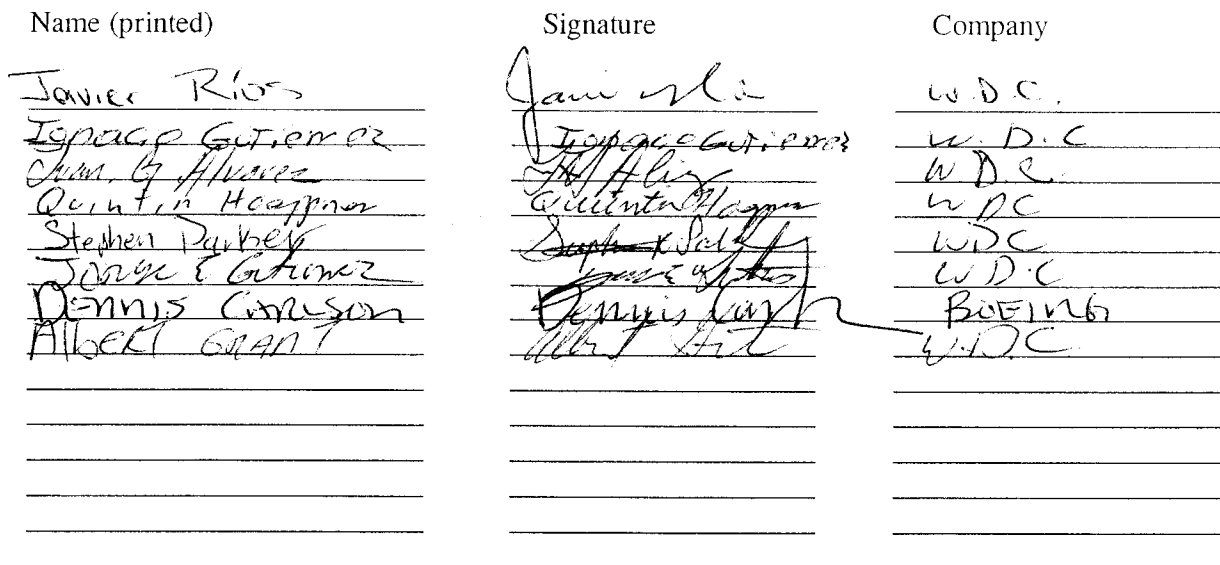 Name (printed) Signature Company
Javier Ríos W.D.C.
Ignacio Gutierrez Ignacio Gutierrez W.D.C
Juan G Alvarez WDC
Quintin WDC
Stephen Parker WDC
Jorge E Gutierrez WD.C
DENNIS CARLSON Dennis BOEING
AlbERT GRANT Albert W.D.C